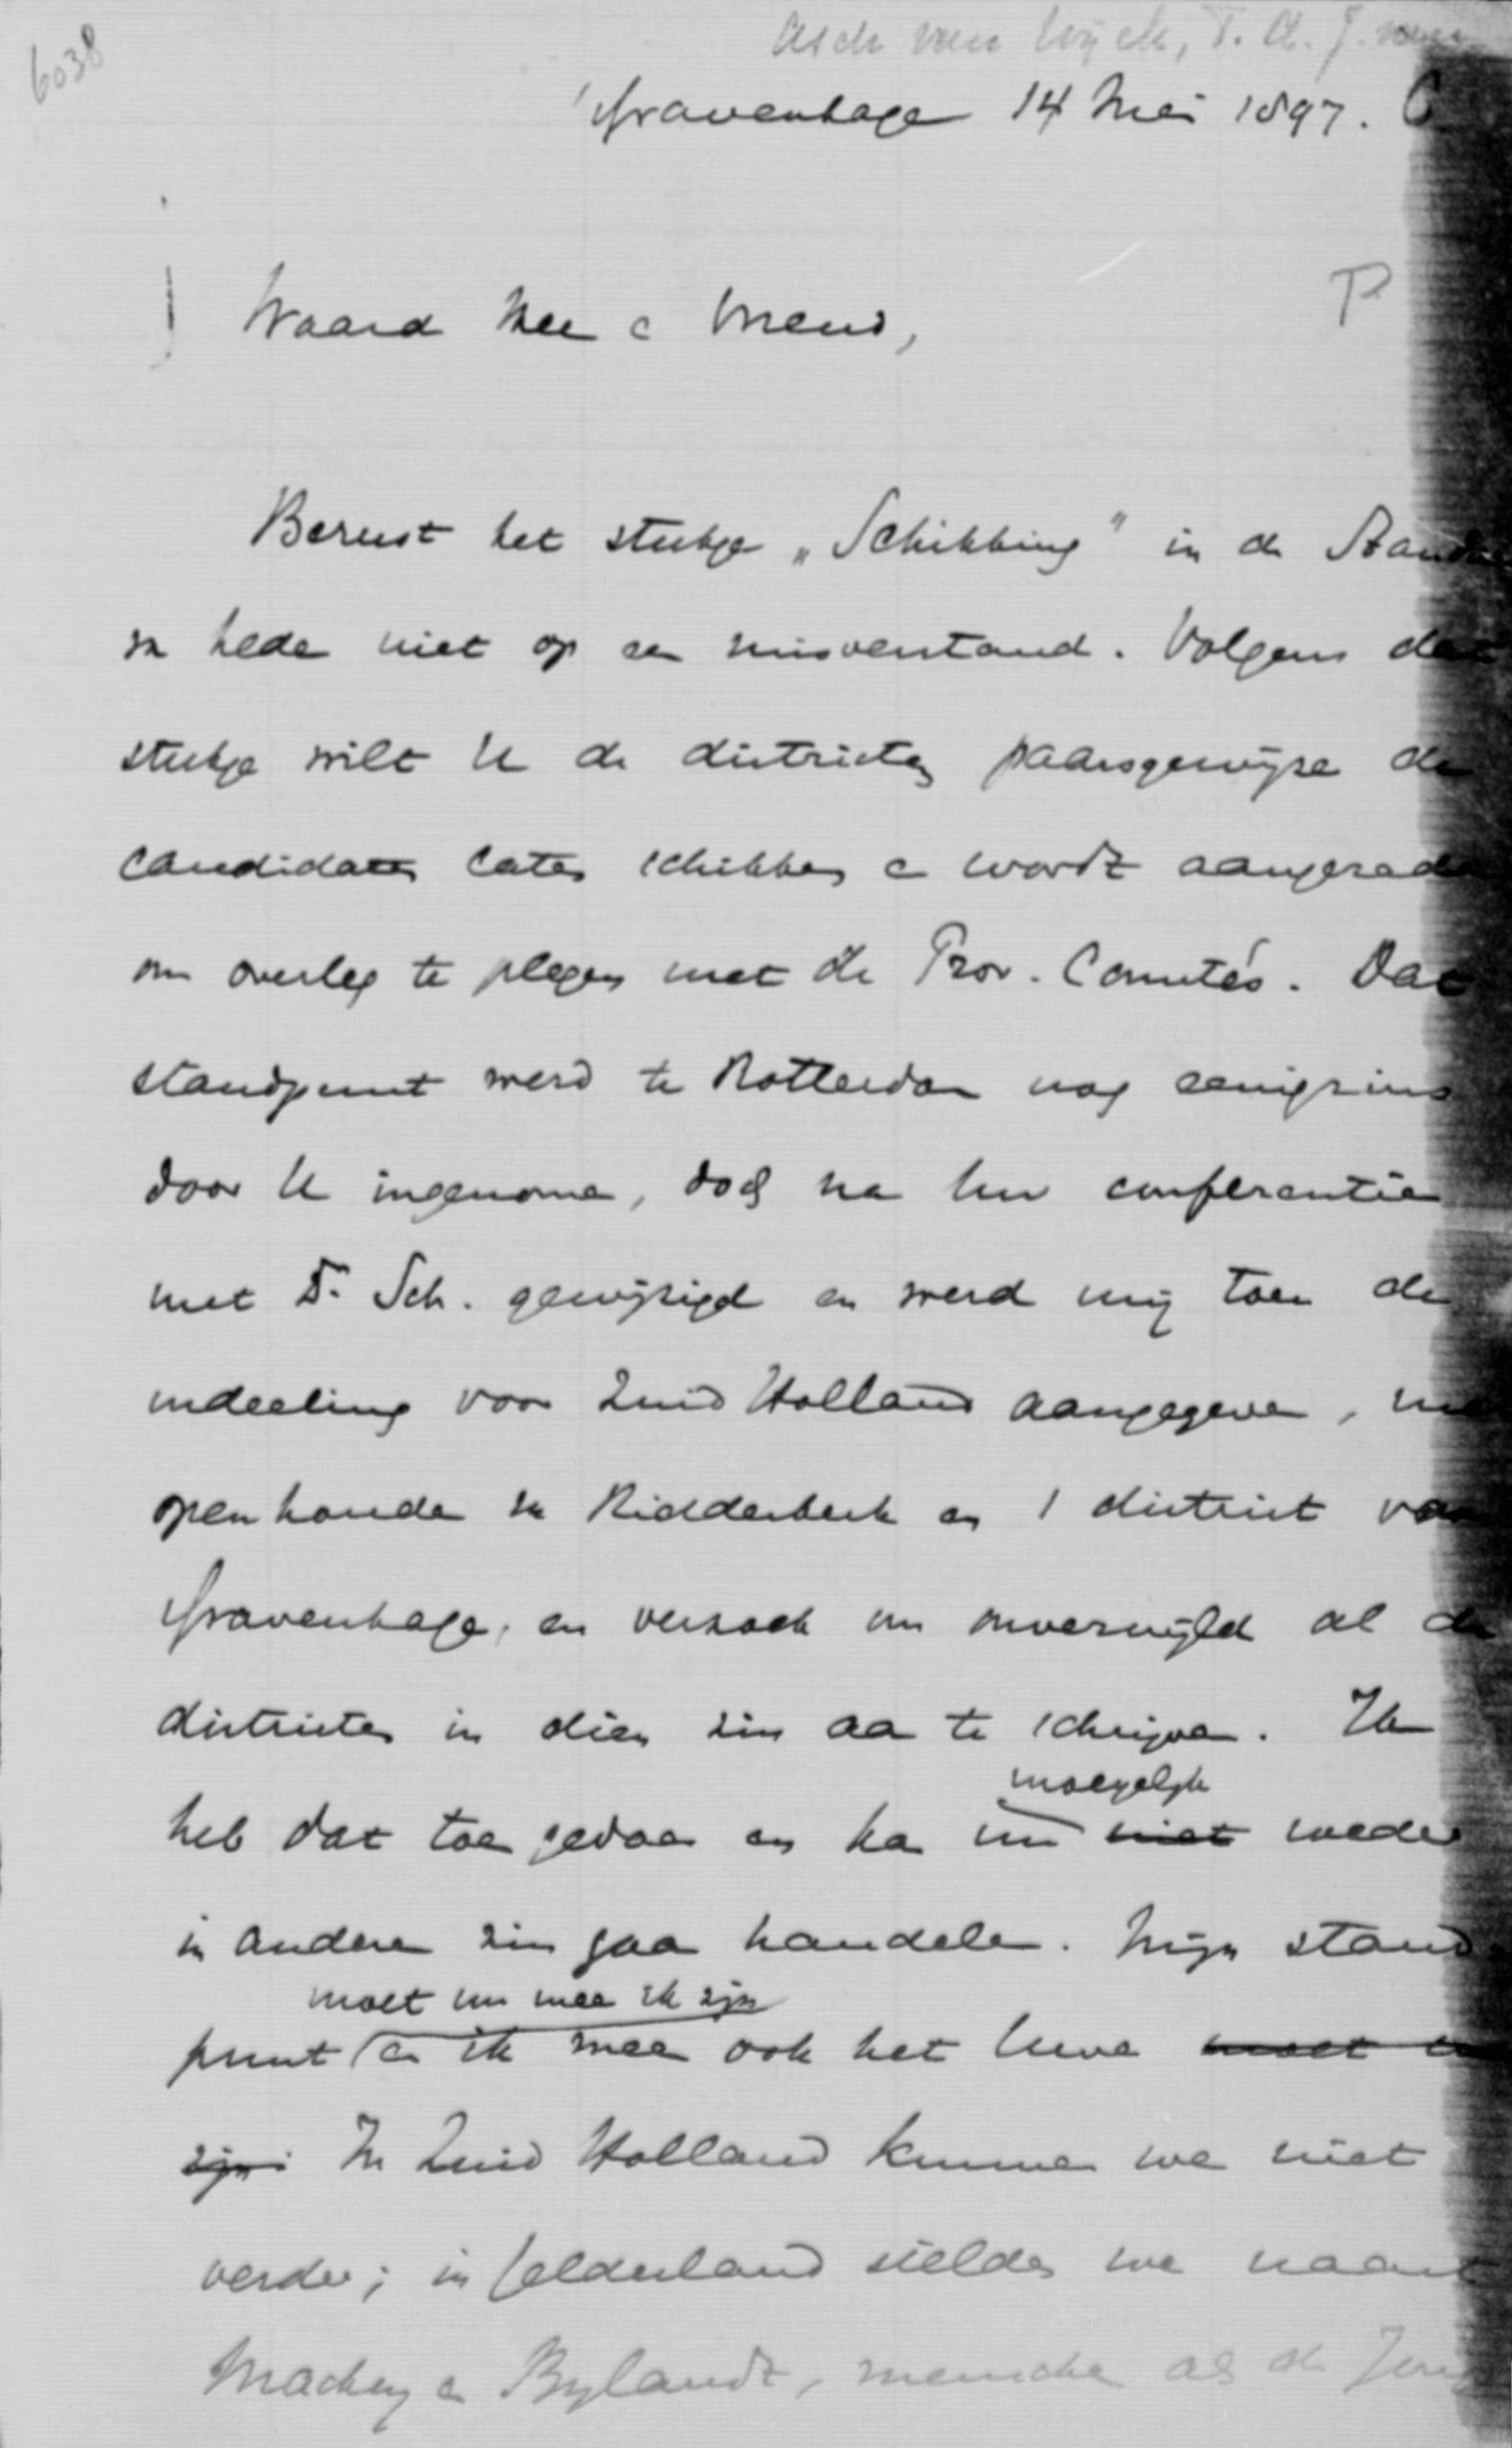 6038
Asch van Wijck, T. A. J. van
'sGravenhage 14 Mei 1897.
P
Waarde Heer en Vriend,
Berust het stukje „Schikking" in de Stand
van heden niet op een misverstand. Volgens dat
stukje wilt U de districten paarsgewijze de
candidaten laten schikken en wordt aangerade
om overleg te plegen met de Prov. Comités. Dat
standpunt werd te Rotterdam nog eenigzins
door U ingenomen, doch na Uw conferentie
met Dr. Sch. gewijzigd en werd mij toen de
indeeling voor Zuid Holland aangegeven, met
openhouden van Ridderkerk en 1 district van
'sGravenhage, en verzoek om onverwijld al de
districten in dien zin aan te schrijven. Ik
moeyelijk
heb dat toen gedaan en kan nu niet weder
in anderen zin gaan handelen. Mijn stand
moet nu meen ik zijn
punt en ik meen ook het Uwe moet
zijn. In Zuid Holland kunnen we niet
verder; in Gelderland stelden we naast
Mackay en Bylandt, menschen als de Jong